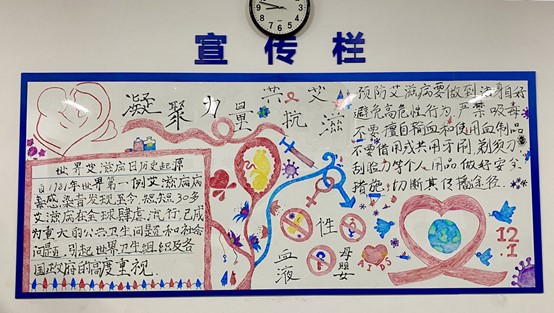 宣传栏
凝聚力量 共抗艾滋
世界艾滋病日历史起源
自1981年世界第一例艾滋病病
毒感染者发现至今,短短30多
艾滋病在全球肆虐,流行,已成
为重大的公共卫生问题和社会
问题,引起世界卫生组织及各
国政府的高度重视.
预防艾滋病要做到洁身自好
避免高危性行为 严禁吸毒
不要擅自输血和使用血制品
不要借用或共用牙刷,剃须刀
刮脸刀等个人用品做好安全
措施,切断其传播途径
性
血液
母婴
AIDS
12.1